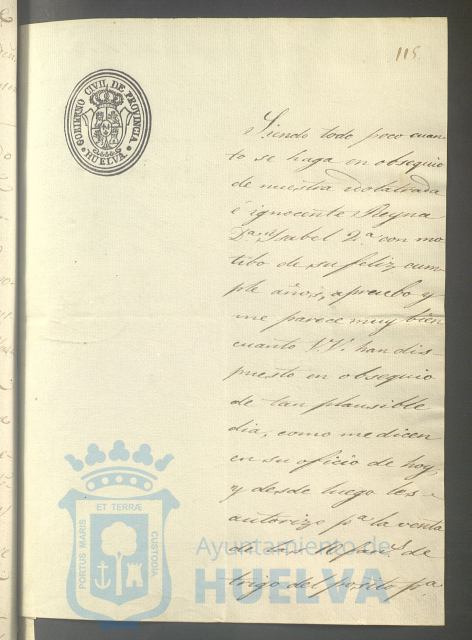 115.
GOBIERNO CIVIL DE PROVINCIA
HUELVA
Siendo todo poco cuan
to se haga en obsequio
de nuestra idolatrada
é ignocente Reyna
Dª Isabel 2.ª con mo
tibo de su feliz cum
ple años, apruebo y
me parece muy bien
cuanto V.V. han dis
puesto en obsequio
de tan plausible
dia, como me dicen
en su oficio de hoy,
y desde luego les
autorizo pª la venta
de las fans de
trigo del posito pª
PORTUS MARIS ET TERRÆ CUSTODIA
Ayuntamiento de
HUELVA